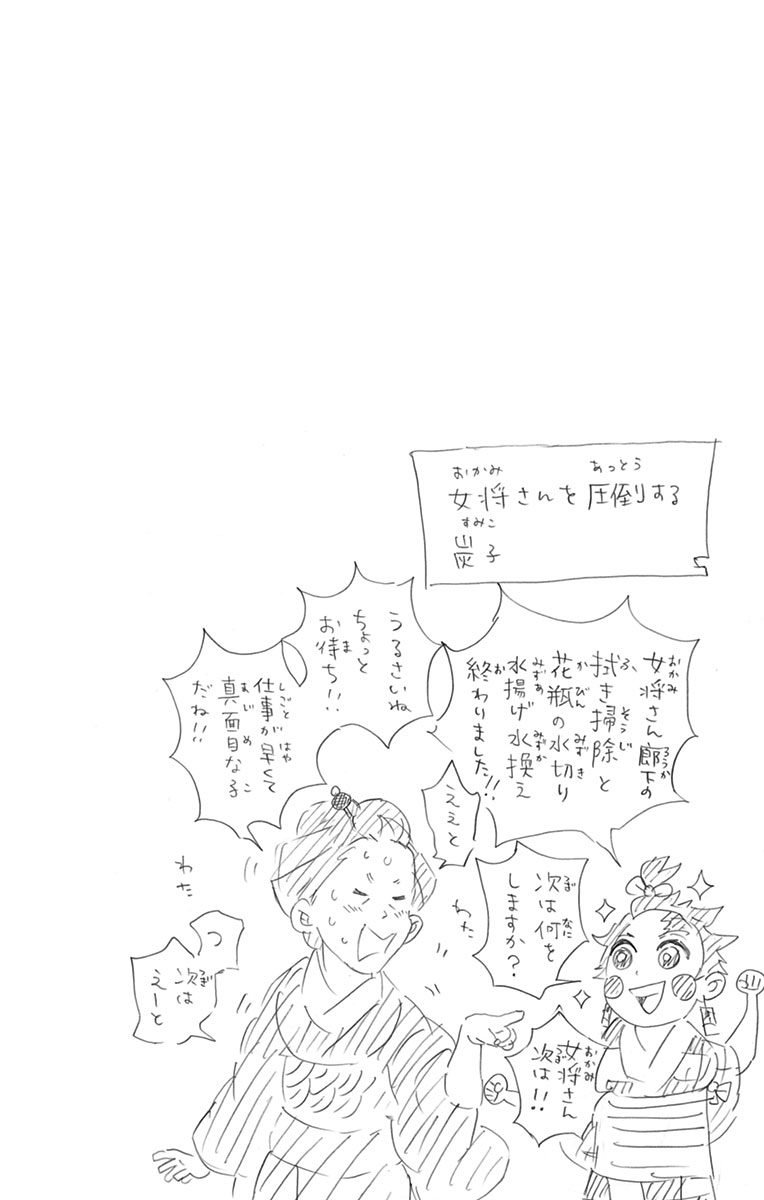 女将さんを圧倒する
炭子
女将さん廊下の
拭き掃除と
花瓶の水切り
水揚げ水換え
終わりました!!
次は何を
しますか?
女将さん
次は!!
ええと
うるさいね
ちょっと
お待ち!!
仕事が早くて
真面目な子
だね!!
わた
わた
つ
次は
えーと